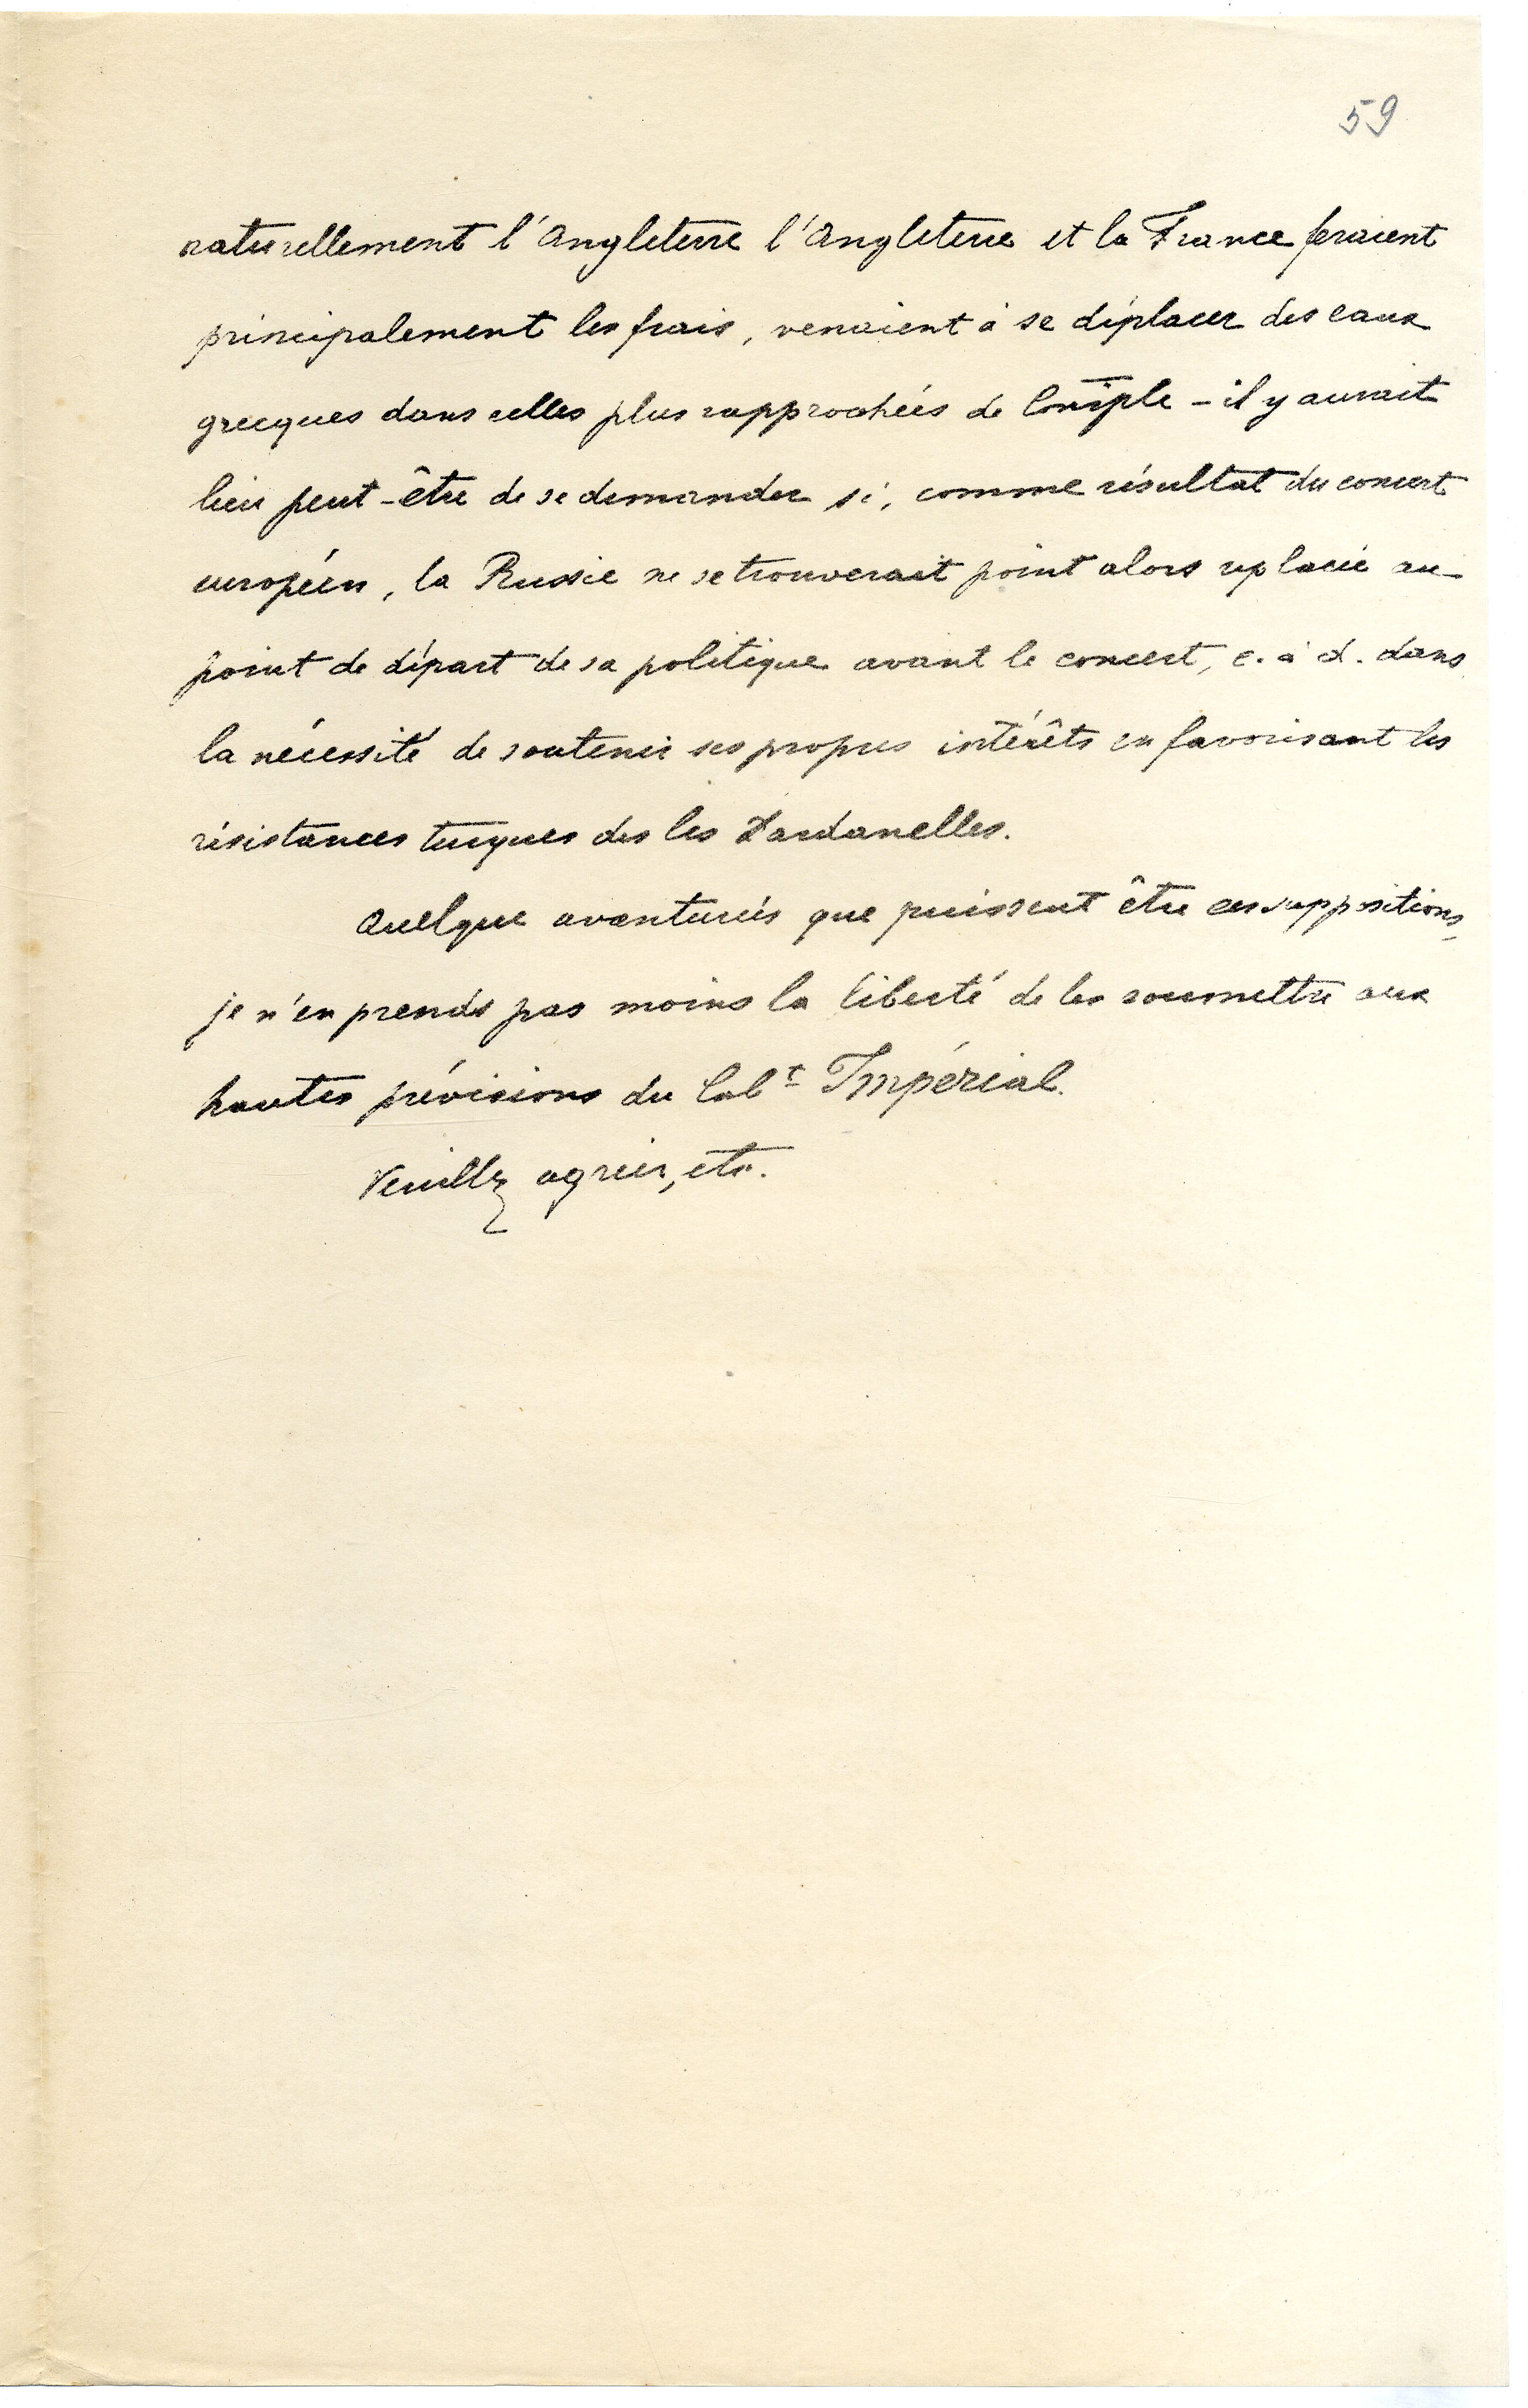 59
naturellement l'Angleterre l'Angleterre et la France feraient
principalement les frais, venaient à se déplacer des eaux
grecques dans celles plus rapprochées de Consple – il y aurait
lieu peut-être de se demander si, comme résultat du concert
européen, la Russie ne se trouverait point alors replacée au
point de départ de sa politique avant le concert, c. à d. dans
la nécessité de soutenir ses propres intérêts en favorisant les
résistances turques des les Dardanelles.
Quelque aventurées que puissent être ces suppositions,
je n'en prends pas moins la liberté de les soumettre aux
hautes prévisions du Cabt Impérial.
Veuillez agréer, etc.